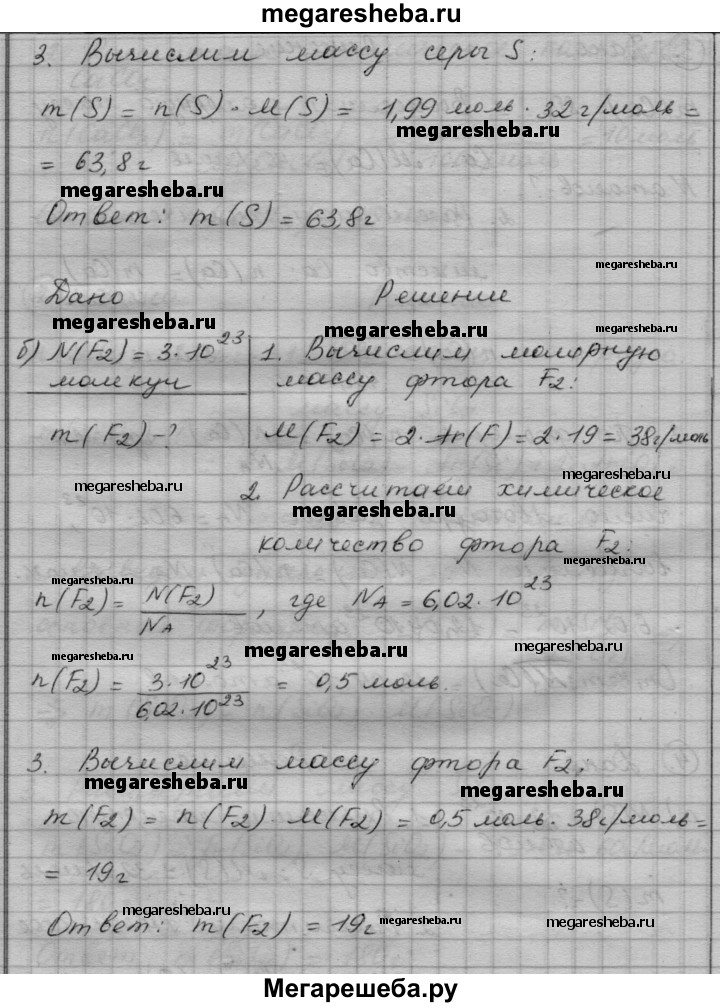 megaresheba.ru
3. Вычислим массу серы S:
m(S) = n(S) · M(S) = 1,99 моль · 32 г/моль =
megaresheba.ru
= 63,8 г
megaresheba.ru
Ответ: m(S) = 63,8 г
megaresheba.ru
Дано Решение
megaresheba.ru
megaresheba.ru
б) N(F₂) = 3·10²³ 1. Вычислим молярную
молекул массу фтора F₂:
m(F₂) - ? M(F₂) = 2·Ar(F) = 2·19 = 38 г/моль
megaresheba.ru
megaresheba.ru
2. Рассчитаем химическое
megaresheba.ru
количество фтора F₂:
megaresheba.ru
megaresheba.ru
n(F₂) = N(F₂)/N_A , где N_A = 6,02·10²³
megaresheba.ru
megaresheba.ru
n(F₂) = 3·10²³/6,02·10²³ = 0,5 моль.
megaresheba.ru
3. Вычислим массу фтора F₂:
megaresheba.ru
megaresheba.ru
m(F₂) = n(F₂) · M(F₂) = 0,5 моль · 38 г/моль =
= 19 г
megaresheba.ru
Ответ: m(F₂) = 19 г
megaresheba.ru
megaresheba.ru
Мегарешеба.ру